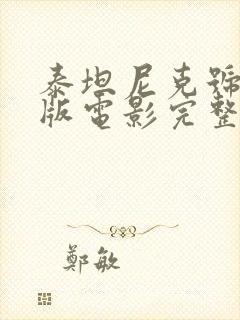 泰坦尼克號
版電影完整
鄭敏